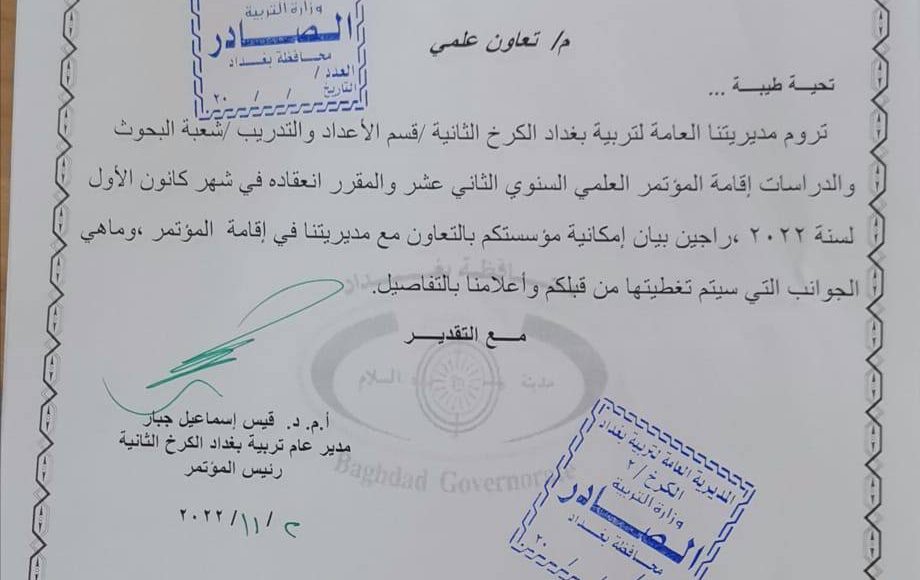 وزارة التربية
الصادر
محافظة بغداد
العدد /
التاريخ
/ / ٢٠
م/ تعاون علمي
تحية طيبة ...
تروم مديريتنا العامة لتربية بغداد الكرخ الثانية /قسم الأعداد والتدريب /شعبة البحوث
والدراسات إقامة المؤتمر العلمي السنوي الثاني عشر والمقرر انعقاده في شهر كانون الأول
لسنة ٢٠٢٢ ،راجين بيان إمكانية مؤسستكم بالتعاون مع مديريتنا في إقامة المؤتمر ،وماهي
الجوانب التي سيتم تغطيتها من قبلكم وأعلامنا بالتفاصيل.
مع التقدير
محافظة بغداد
مدينة السلام
Baghdad Governorate
أ.م. د. قيس إسماعيل جبار
مدير عام تربية بغداد الكرخ الثانية
رئيس المؤتمر
٢ / ١١ / ٢٠٢٢
المديرية العامة لتربية بغداد
الكرخ / ٢
وزارة التربية
الصادر
محافظة بغداد
/ / ٢٠